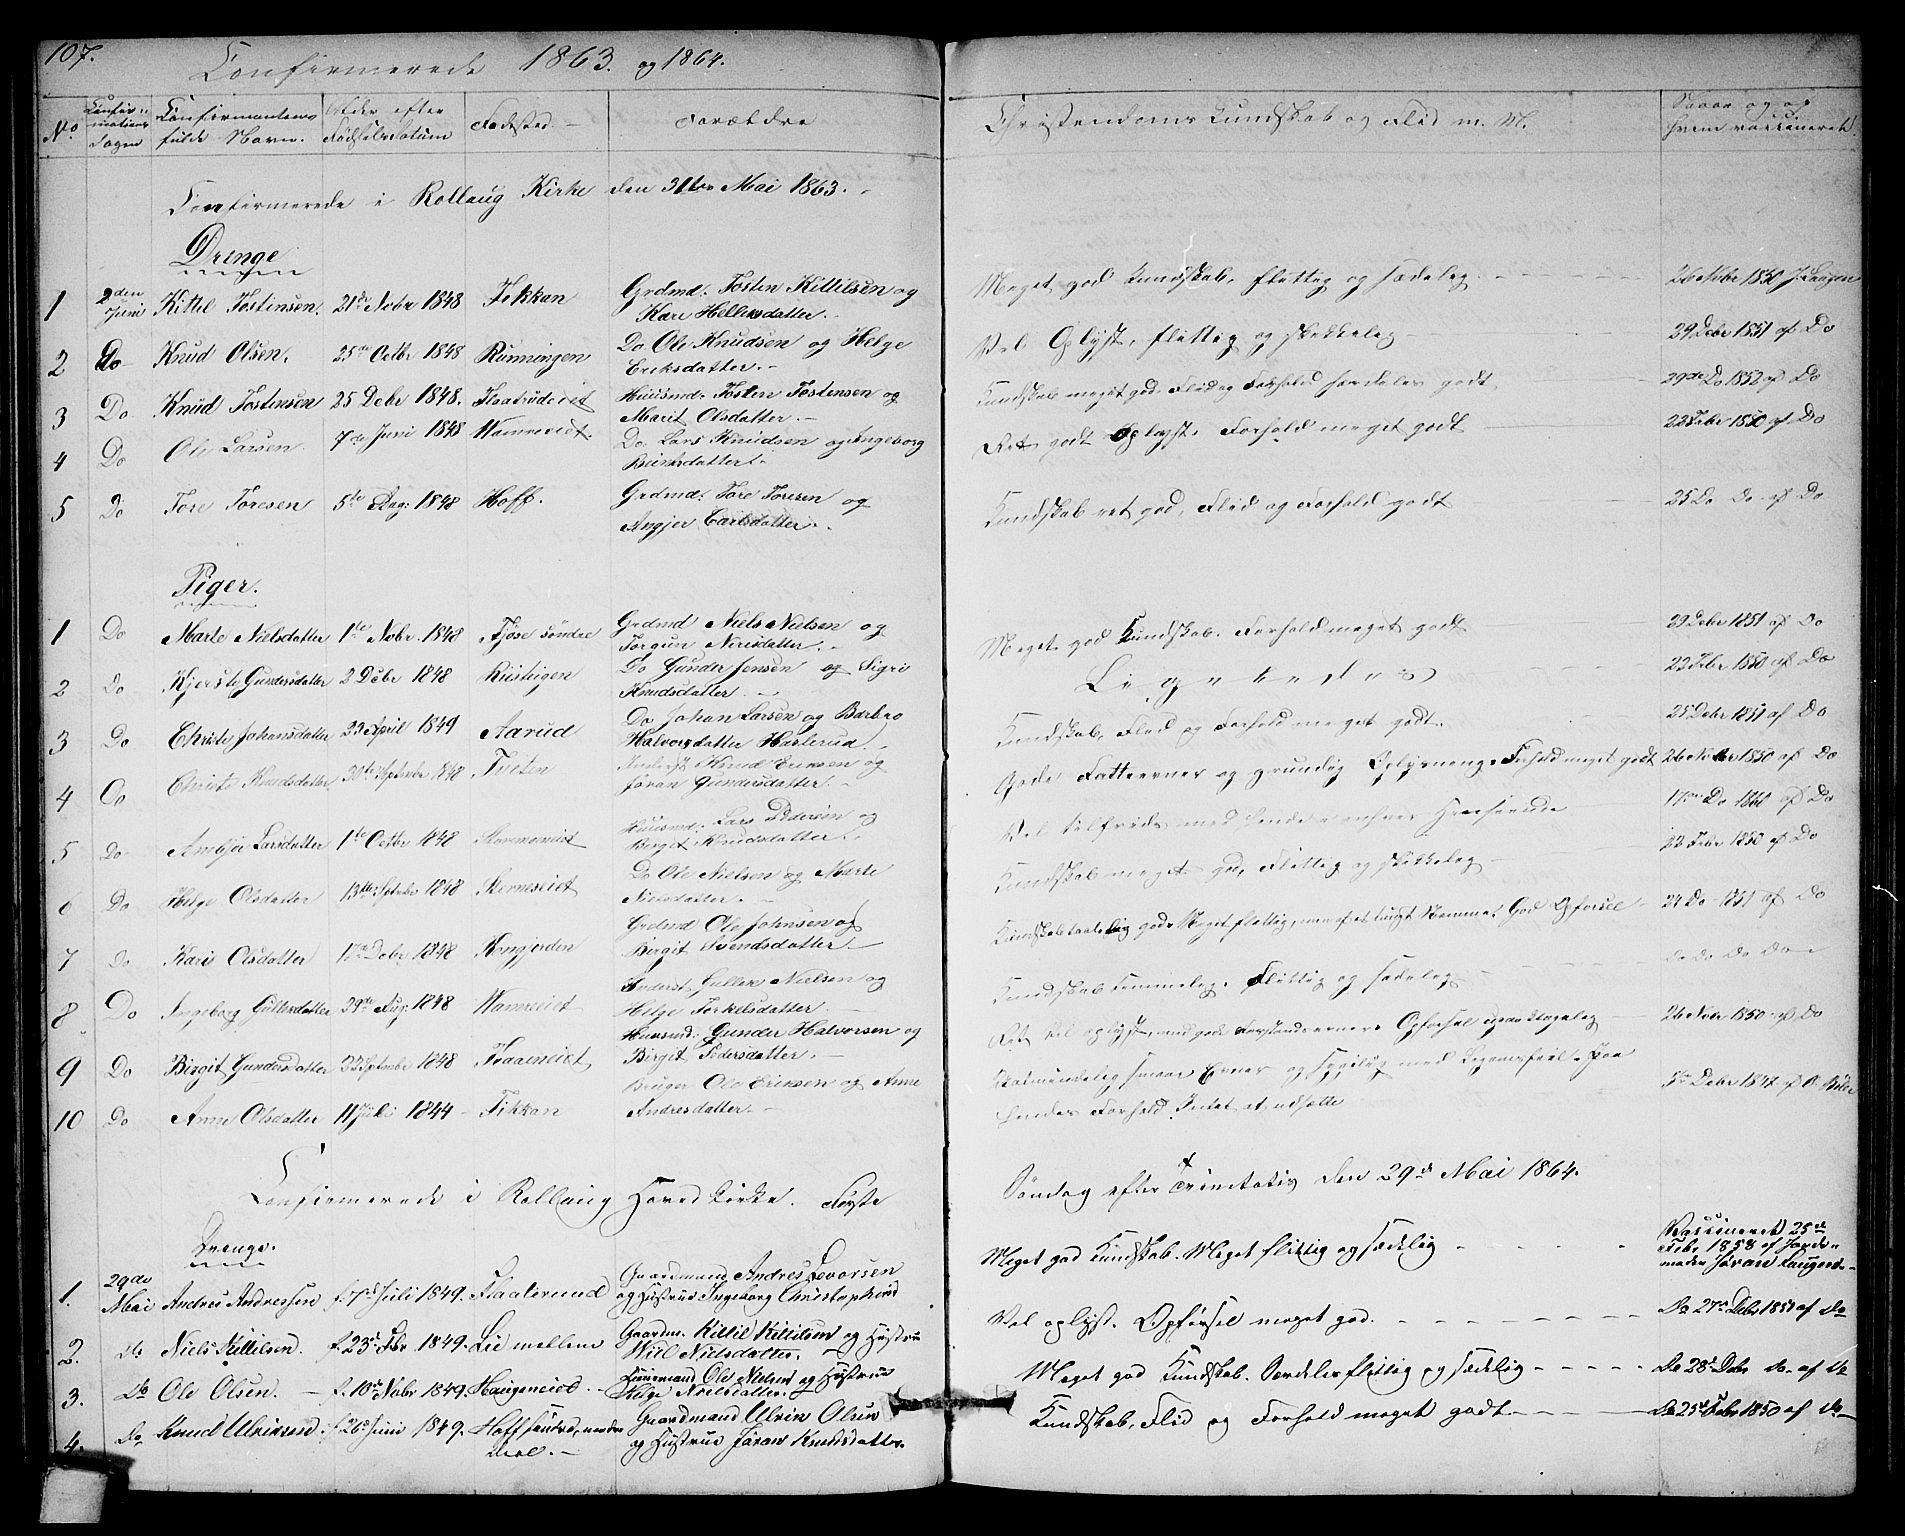 107.
Confirmerede 1863. og 1864.
No
Confir-
mations
Dagen
Confirmantens
fulde Navn.
Alder efter
Fødselsdatum
Fødested.
Forældre
Christendoms Kundskab og Flid m. M.
Naar og af
hvem vaccineret
Confirmerede i Rollaug Kirke den 31te Mai 1863.
Drenge
1 2den Juni Kittel Tostensen. 21de Novbr 1848 Fekkan Grdmd. Tosten Kittilsen og
Kari Hellersdatter.
Meget god Kundskab, flittig og sædelig. 26 Novbr 1850 J. Laagen
2 Do Knud Olsen. 25de Octbr 1848 Runningen Do Ole Knudsen og Helge
Eriksdatter.
Vel Oplyst, flittig og skikkelig 29 Debr 1851 af Do
3 Do Knud Tostensen 25 Debr 1848. Huusmd. Tosten Tostensen og
Marit Olsdatter.
Kundskab meget god. Flid og Forhold særdeles godt 29de Do 1852 af Do
4 Do Ole Larsen 7de Juni 1848 Do Lars Knudsen og Ingeborg
Ret godt Oplyst. Forhold meget godt 22 Febr 1850 af Do
5 Do Tore Toresen 5te Aug. 1848 Hoff. Grdmd. Tore Toresen og
Angjer Carlsdatter.
Kundskab ret god, Flid og Forhold godt 25 Do Do af Do
Piger.
1 Do Marte Nielsdatter 1te Novbr. 1848 Fjøse søndre Grdmd Niels Nielsen og
Torgun Nerisdatter.
Meget god Kundskab. Forhold meget godt 29 Debr 1851 af Do
2 Do Kjersti Gundersdatter 2 Debr 1848 Do Gunder Jensen og Sigri
Knudsdatter.
Ligeledes 22 Febr 1850 af Do
3 Do Christi Johansdatter 23 April 1849 Aarud Do Johan Larsen og Barbro
Halvorsdatter
Kundskab, Flid og Forhold meget godt. 25 Debr 1851 af Do
4 Do Christi Knudsdatter 30te Septbr 1848 Tveten Knud Eriksen og
Jøran Gundersdatter.
Gode Fatteevner og grundig Oplysning. Forhold meget godt 26 Novbr 1850 af Do
5 Do Ambjør Larsdatter 1te Octbr 1848 Huusmd. Lars Pedersen og
Birgit Knudsdatter.
Vel tilfreds med hende i enhver Henseende 17 Do 1860 af Do
6 Do Helge Olsdatter 13te Septbr 1848 Do Ole Nielsen og Marte
Nielsdatter.
Kundskab meget god, Flittig og skikkelig 22 Febr 1850 af Do
7 Do Kari Olsdatter 17de Debr 1848 Grdmd Ole Johnsen og
Birgit Svendsdatter
Kundskab taalelig god. Meget flittig, men af et tungt Nemme. God Opførsel 24 Do 1851 af Do
8 Do Ingeborg Gullersdatter 29de Aug. 1848 Guller Nielsen og
Helge Torkelsdatter
Kundskab temmelig. Flittig og sædelig Do Do Do Do
9 Do Birgit Gundersdatter 23 Septbr 1848 Traaeneiet Huusmd. Gunder Halvorsen og
Birgit Pedersdatter.
Ret vel oplyst, med gode Forstandsevner. Opførsel upaaklagelig 26 Novbr 1850 af Do
10 Do Anne Olsdatter 11 Juli 1844 Fikkan Bruger Ole Eriksen og Anne
Andresdatter.
Almindelig smaae Evner og sygelig med Legemsfeil. Paa
hendes Forhold Intet at udsætte
5te Debr 1847 af
Confirmerede i Rollaug Hoved Kirke. Første
Søndag efter Trinitatis den 29de Mai 1864.
Drenge.
1. 29de Mai Andres Andressen f. 7de Juli 1849. Gaardmand Andres Levorsen
og Hustrue Ingeborg Christophersd
Meget god Kundskab. Meget flittig og sædelig
Vaccineret 25de
Febr 1858 af Jorde-
moder Jøran
2. Do Niels Kittilsen. f. 23de Febr 1849. Lie mellem Gaardm. Kittil Kittilsen og Hustrue
Nielsdatter.
Vel oplyst. Opførsel meget god. Do 27de Debr 1851 af Do
3. Do Ole Olsen. f. 10de Novbr 1849. Haugeneiet Huusmand Ole Nielsen og Hustrue
Helge Nielsdatter.
Meget god Kundskab. Særdeles flittig og sædelig Do 28de Debr Do af Do
4. Do Knud Ulrinsen f. 26de Juni 1849. Hoff søndre, nordre
Deel. Gaardmand Ulrin Olsen
og Hustrue Jøran Knudsdatter.
Kundskab, Flid og Forhold meget godt Do 25de Febr 1850 af Do